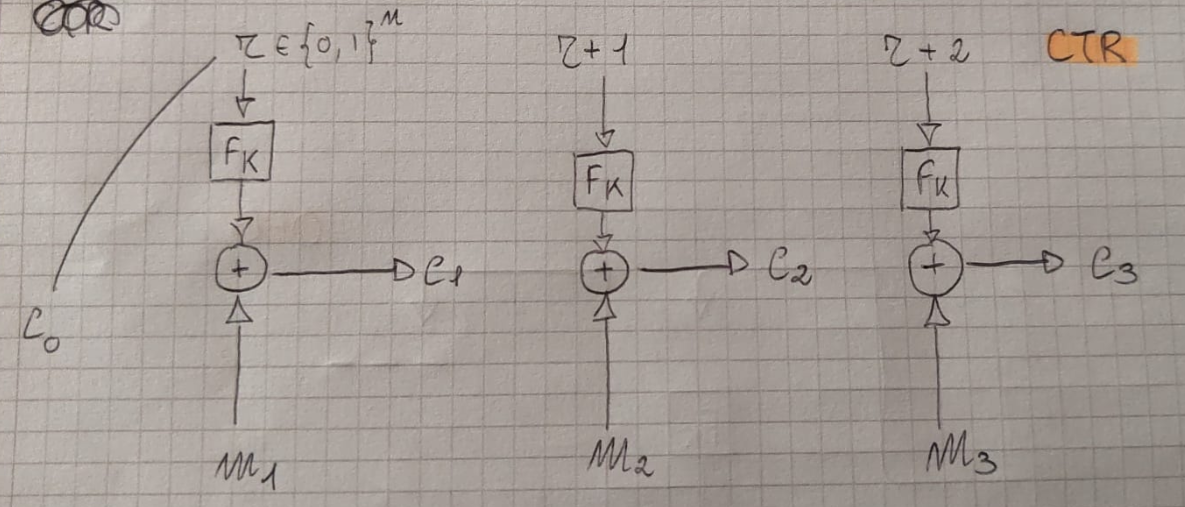 r ∈ {0,1}ⁿ r+1 r+2 CTR
F_K F_K F_K
+ C₁ + C₂ + C₃
C₀
m₁ m₂ m₃